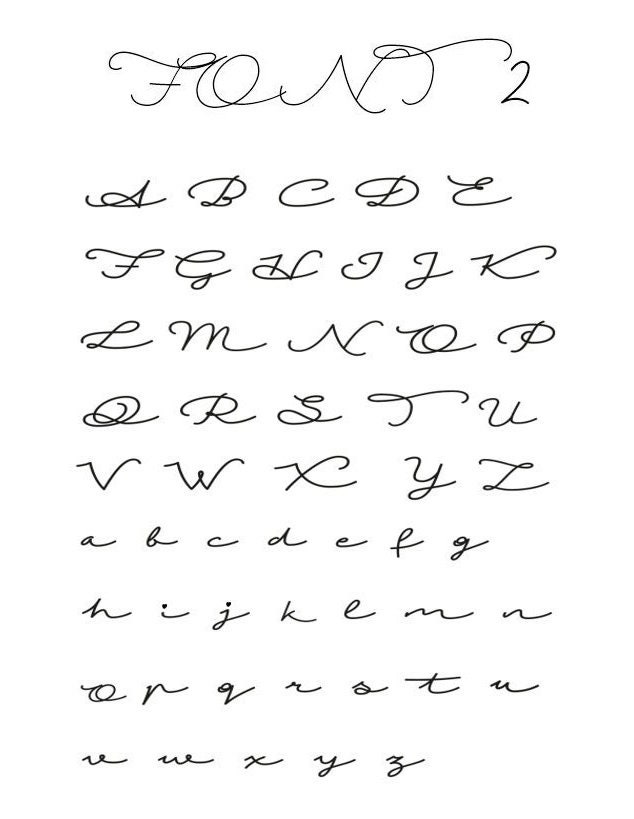 FONT 2
A B C D E
F G H I J K
L M N O P
Q R S T U
V W X Y Z
a b c d e f g
h i j k l m n
o p q r s t u
v w x y z